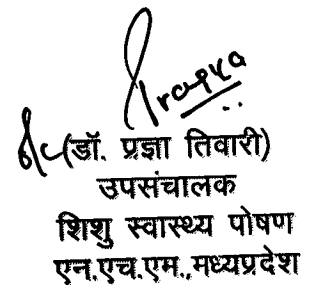 (डॉ. प्रज्ञा तिवारी)
उपसंचालक
शिशु स्वास्थ्य पोषण
एन.एच.एम.,मध्यप्रदेश